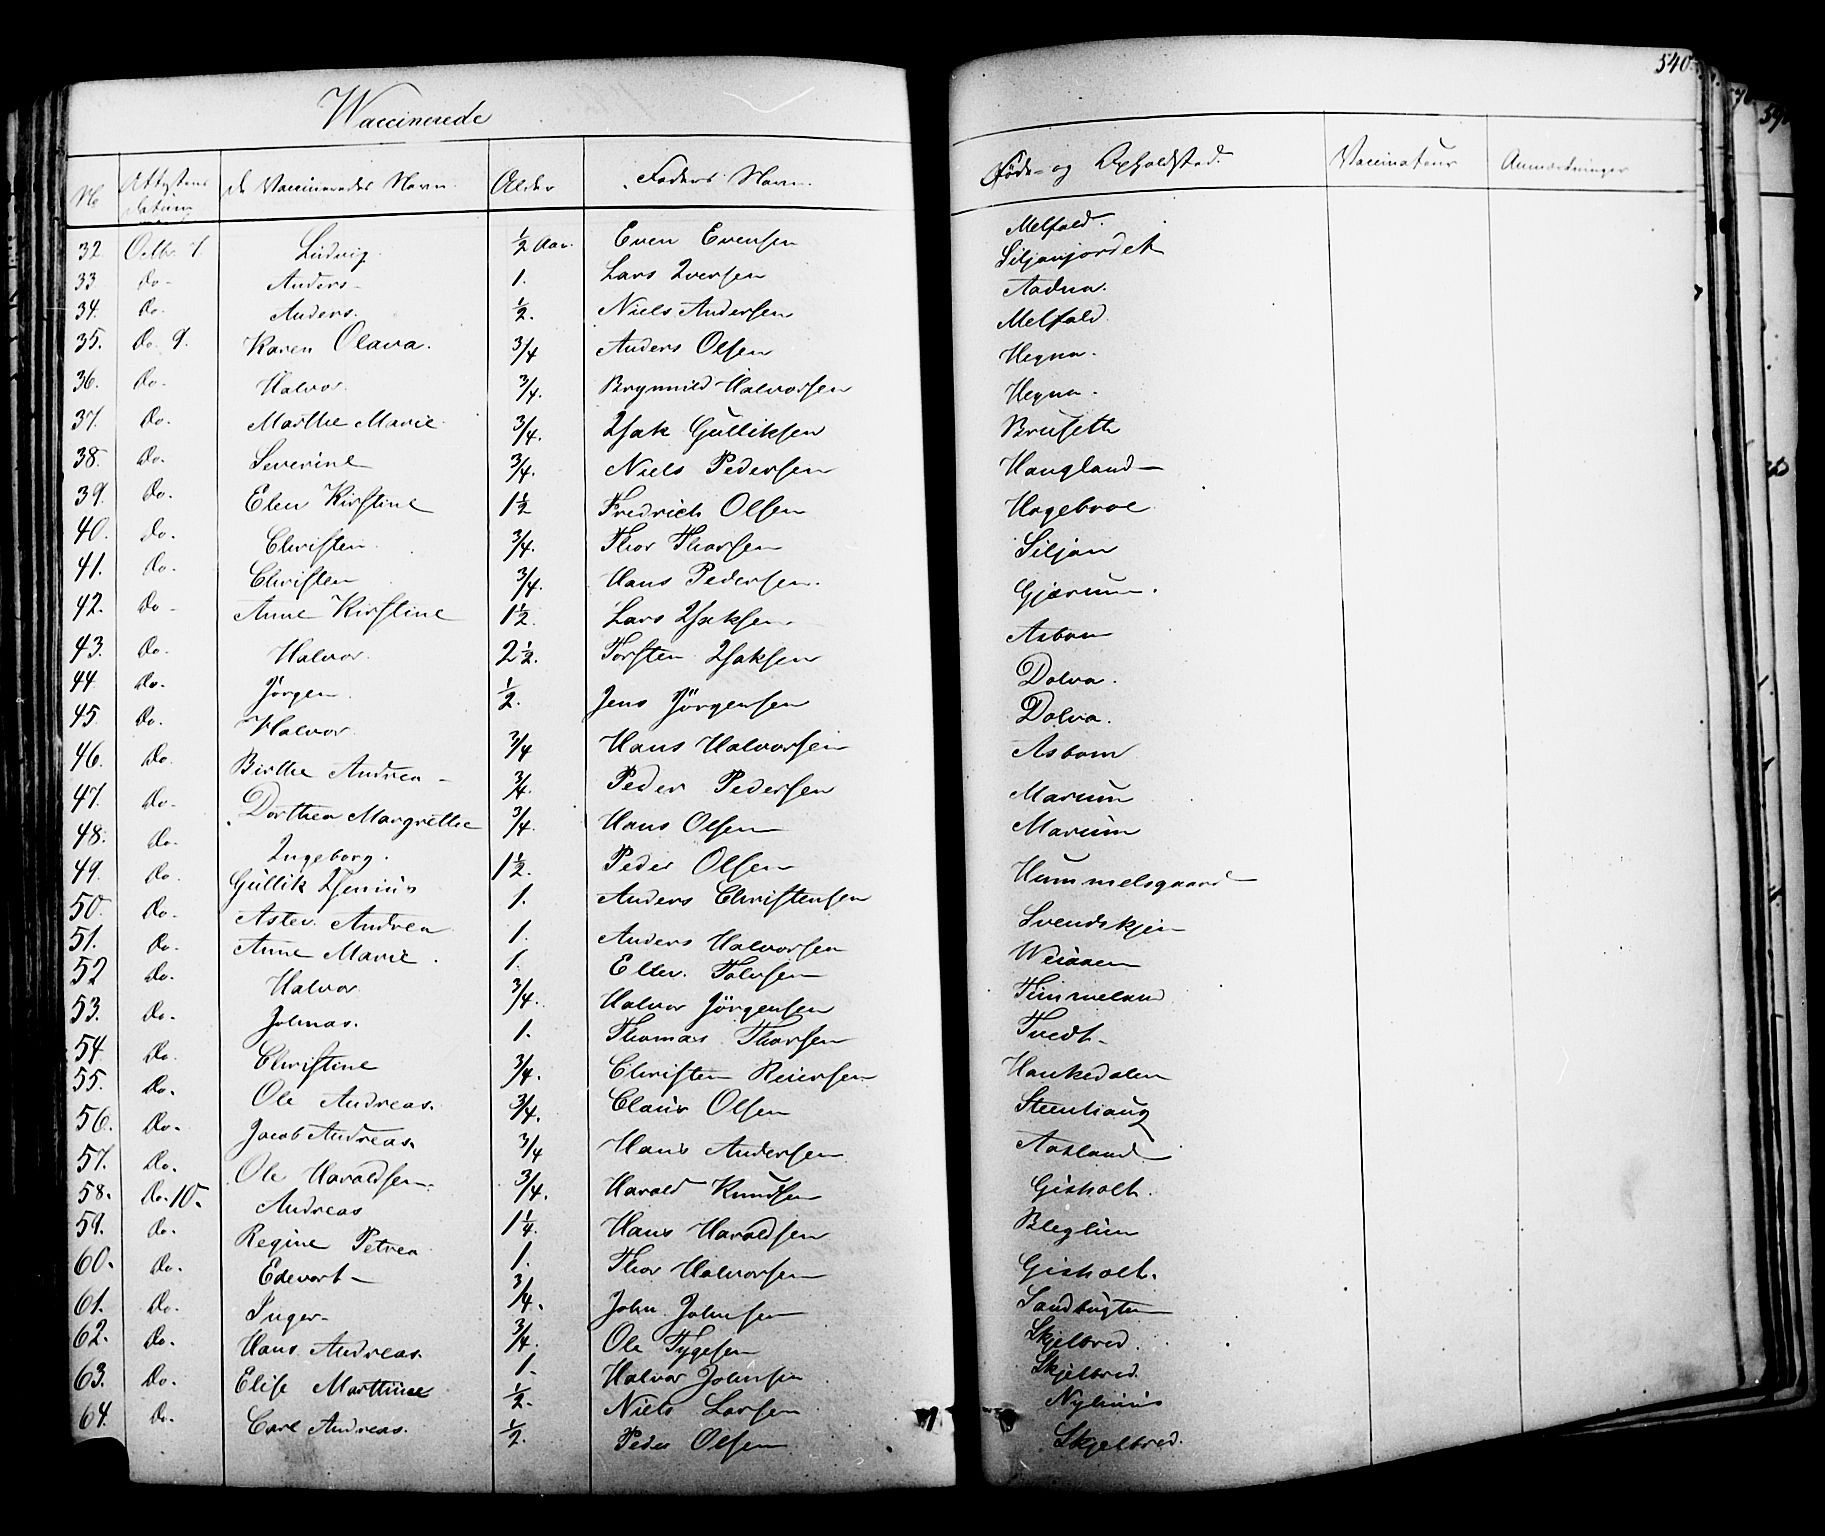 540.
Vaccinerede
No Attestens datum De Vaccineredes Navn. Alder Faders Navn. Føde- og Opholdsted. Vaccinateur Anmærkninger
32. Octbr 7. Ludvig. ½ Aar. Even Evensen Melfald.
33 Do- Anders- 1. Lars Iversen Siljanjordet
34. Do. Anders. ½. Niels Andersen Aadna.
35. Do. 9. Karen Olava. ¾ Anders Olsen Melfald.
36. Do. Halvor. ¾. Brynnild Halvorsen Hegna.
37. Do. Marthe Marie ¾. Isak Gulliksen Hegna.
38. Do. Severine ¾. Niels Pedersen Brusette
39. Do. Elen Kirstine 1½ Fredrich Olsen Haugland-
40. Do. Christen. ¾. Thor Thorsen Hogebroe
41. Do. Christen ¾. Hans Pedersen. Siljan
42. Do- Anne Kirstine 1½. Lars Isaksen. Gjærum.
43. Do. Halvor. 2½. Torsten Isaksen Asbom
44. Do. Jørgen. ½. Jens Jørgensen Dolva.
45. Do. Halvor. ¾ Hans Halvorsen Dolva.
46. Do. Birthe Andrea- ¾. Peder Pedersen Asbom
47. Do- Dorthea Margrethe ¾. Hans Olsen Marum
48. Do. Ingeborg. 1½. Peder Olsen Marum
49. Do. Gullik 1. Anders Christensen Hummelsgaard
50. Do. Andrea 1. Anders Halvorsen Svendskjen
51. Do. Anne Marie. 1. Tolvsen
52 Do. Halvor ¾. Halvor Jørgensen Timmeland
53. Do. Johnas. 1. Thomas Thorsen Tvedt-
54. Do. Christine ¾. Christen Reiersen Hankedalen
55. Do. Ole Andreas. ¾. Claus Olsen Steenhaug
56. Do. Jacob Andreas. ¾ Hans Andersen Aasland
57. Do. Ole Haraldsen. ¾. Harald Knudsen Gisholt.
58. Do. 10. Andreas 1¼. Hans Haraldsen
59. Do. Regine Petrea 1. Thor Halvorsen Gisholt.
60. Do. Edevart- ¾. John Johnsen Sandbugten
61. Do. Inger- ¾. Ole Tygesen Skjelbred.
62. Do. Hans Andreas. 1. Halvor Johnsen Skjelbred.
63. Do. Elise Marthine ½. Niels Larsen Nyhuus
64. Do. Carl Andreas. ½. Peder Olsen Skjelbred.